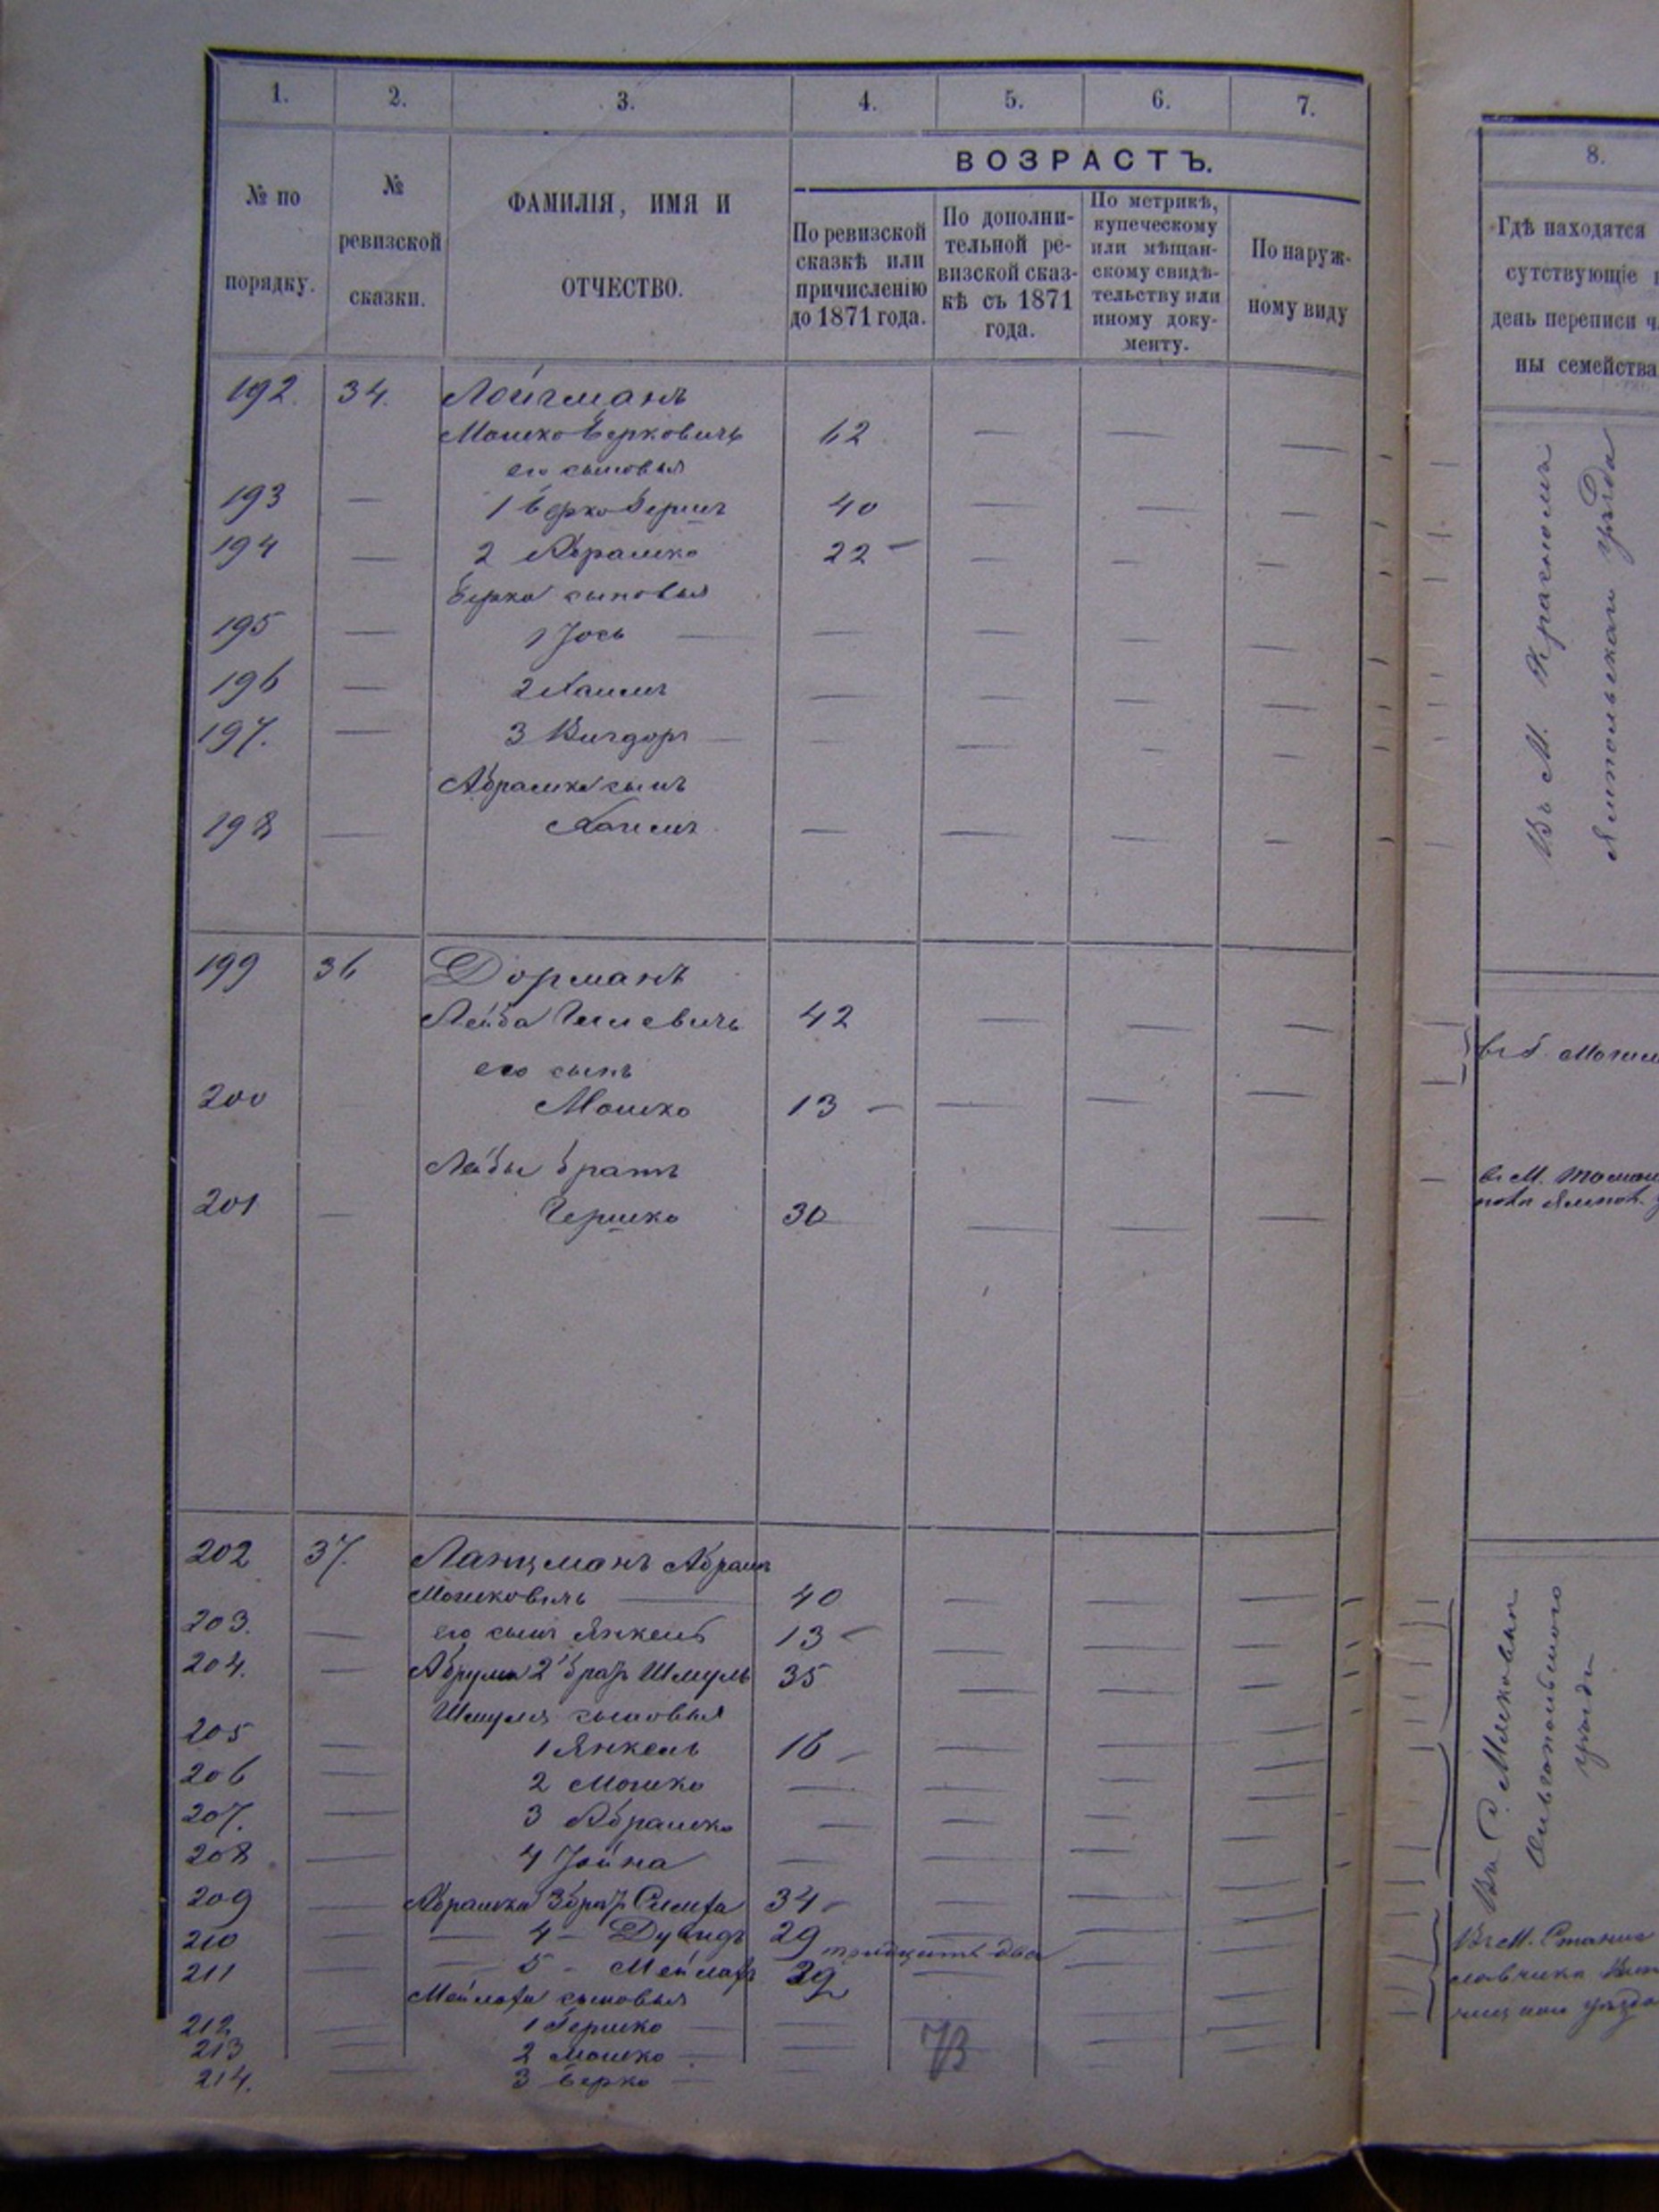 1. 2. 3. 4. 5. 6. 7.
№ по порядку.
№ ревизской сказки.
ФАМИЛІЯ, ИМЯ И ОТЧЕСТВО.
ВОЗРАСТЪ.
По ревизской сказкѣ или причисленію до 1871 года.
По дополнительной ревизской сказкѣ съ 1871 года.
По метрикѣ, купеческому или мѣщанскому свидѣтельству или иному документу.
По наружному виду
192. 34. Лойгманъ
Мошко Берковичъ 62 — — —
его сыновья
193 — 1 Берко Герш 40 — — —
194 — 2 Абрашко 22 — — — —
Берка сыновья
195 — 1 Іось — — — — —
196 — 2 Хаимъ — — — —
197. — 3 Вигдоръ — — — — —
Абрашка сынъ
198 — Хаимъ — — — —
199 36 Дорманъ
Лейба 42 — — —
его сынъ
200 Мошко 13 — — — —
Лейбы братъ
201 — Гершко 30 — — —
202 37. Ланцманъ Абрам
Мошковичъ — 40 — — —
203. — его сынъ Янкель 13 — — — —
204. — 2 брат Шмуль 35 — — —
Шмуля сыновья
205 — 1 Янкель 16 — — — —
206 — 2 Мошко — — — —
207. — 3 Абрашко — — — —
208 — 4 Іойна — — — —
209 — Абрашка 3 брат 34 — — — —
210 — 4 — Дувидъ 29 — — —
тридцать два
211 — 5 - Мейлах 32 — — —
Мейлаха сыновья
212 — 1 Гершко — — — — —
213 — 2 Мошко — — — — —
214. — 3 Берко — — — — —
73
8.
Гдѣ находятся
сутствующіе
день переписи ч
ны семейства
Въ М. Красномъ
Ямпольскаго уѣзда
въ г. Могил
въ М. Томаш
Въ С. Мясковки
Ольгопольского
уѣзда
Въ М. Станис
лавчика Вин
ницкаго уѣзда